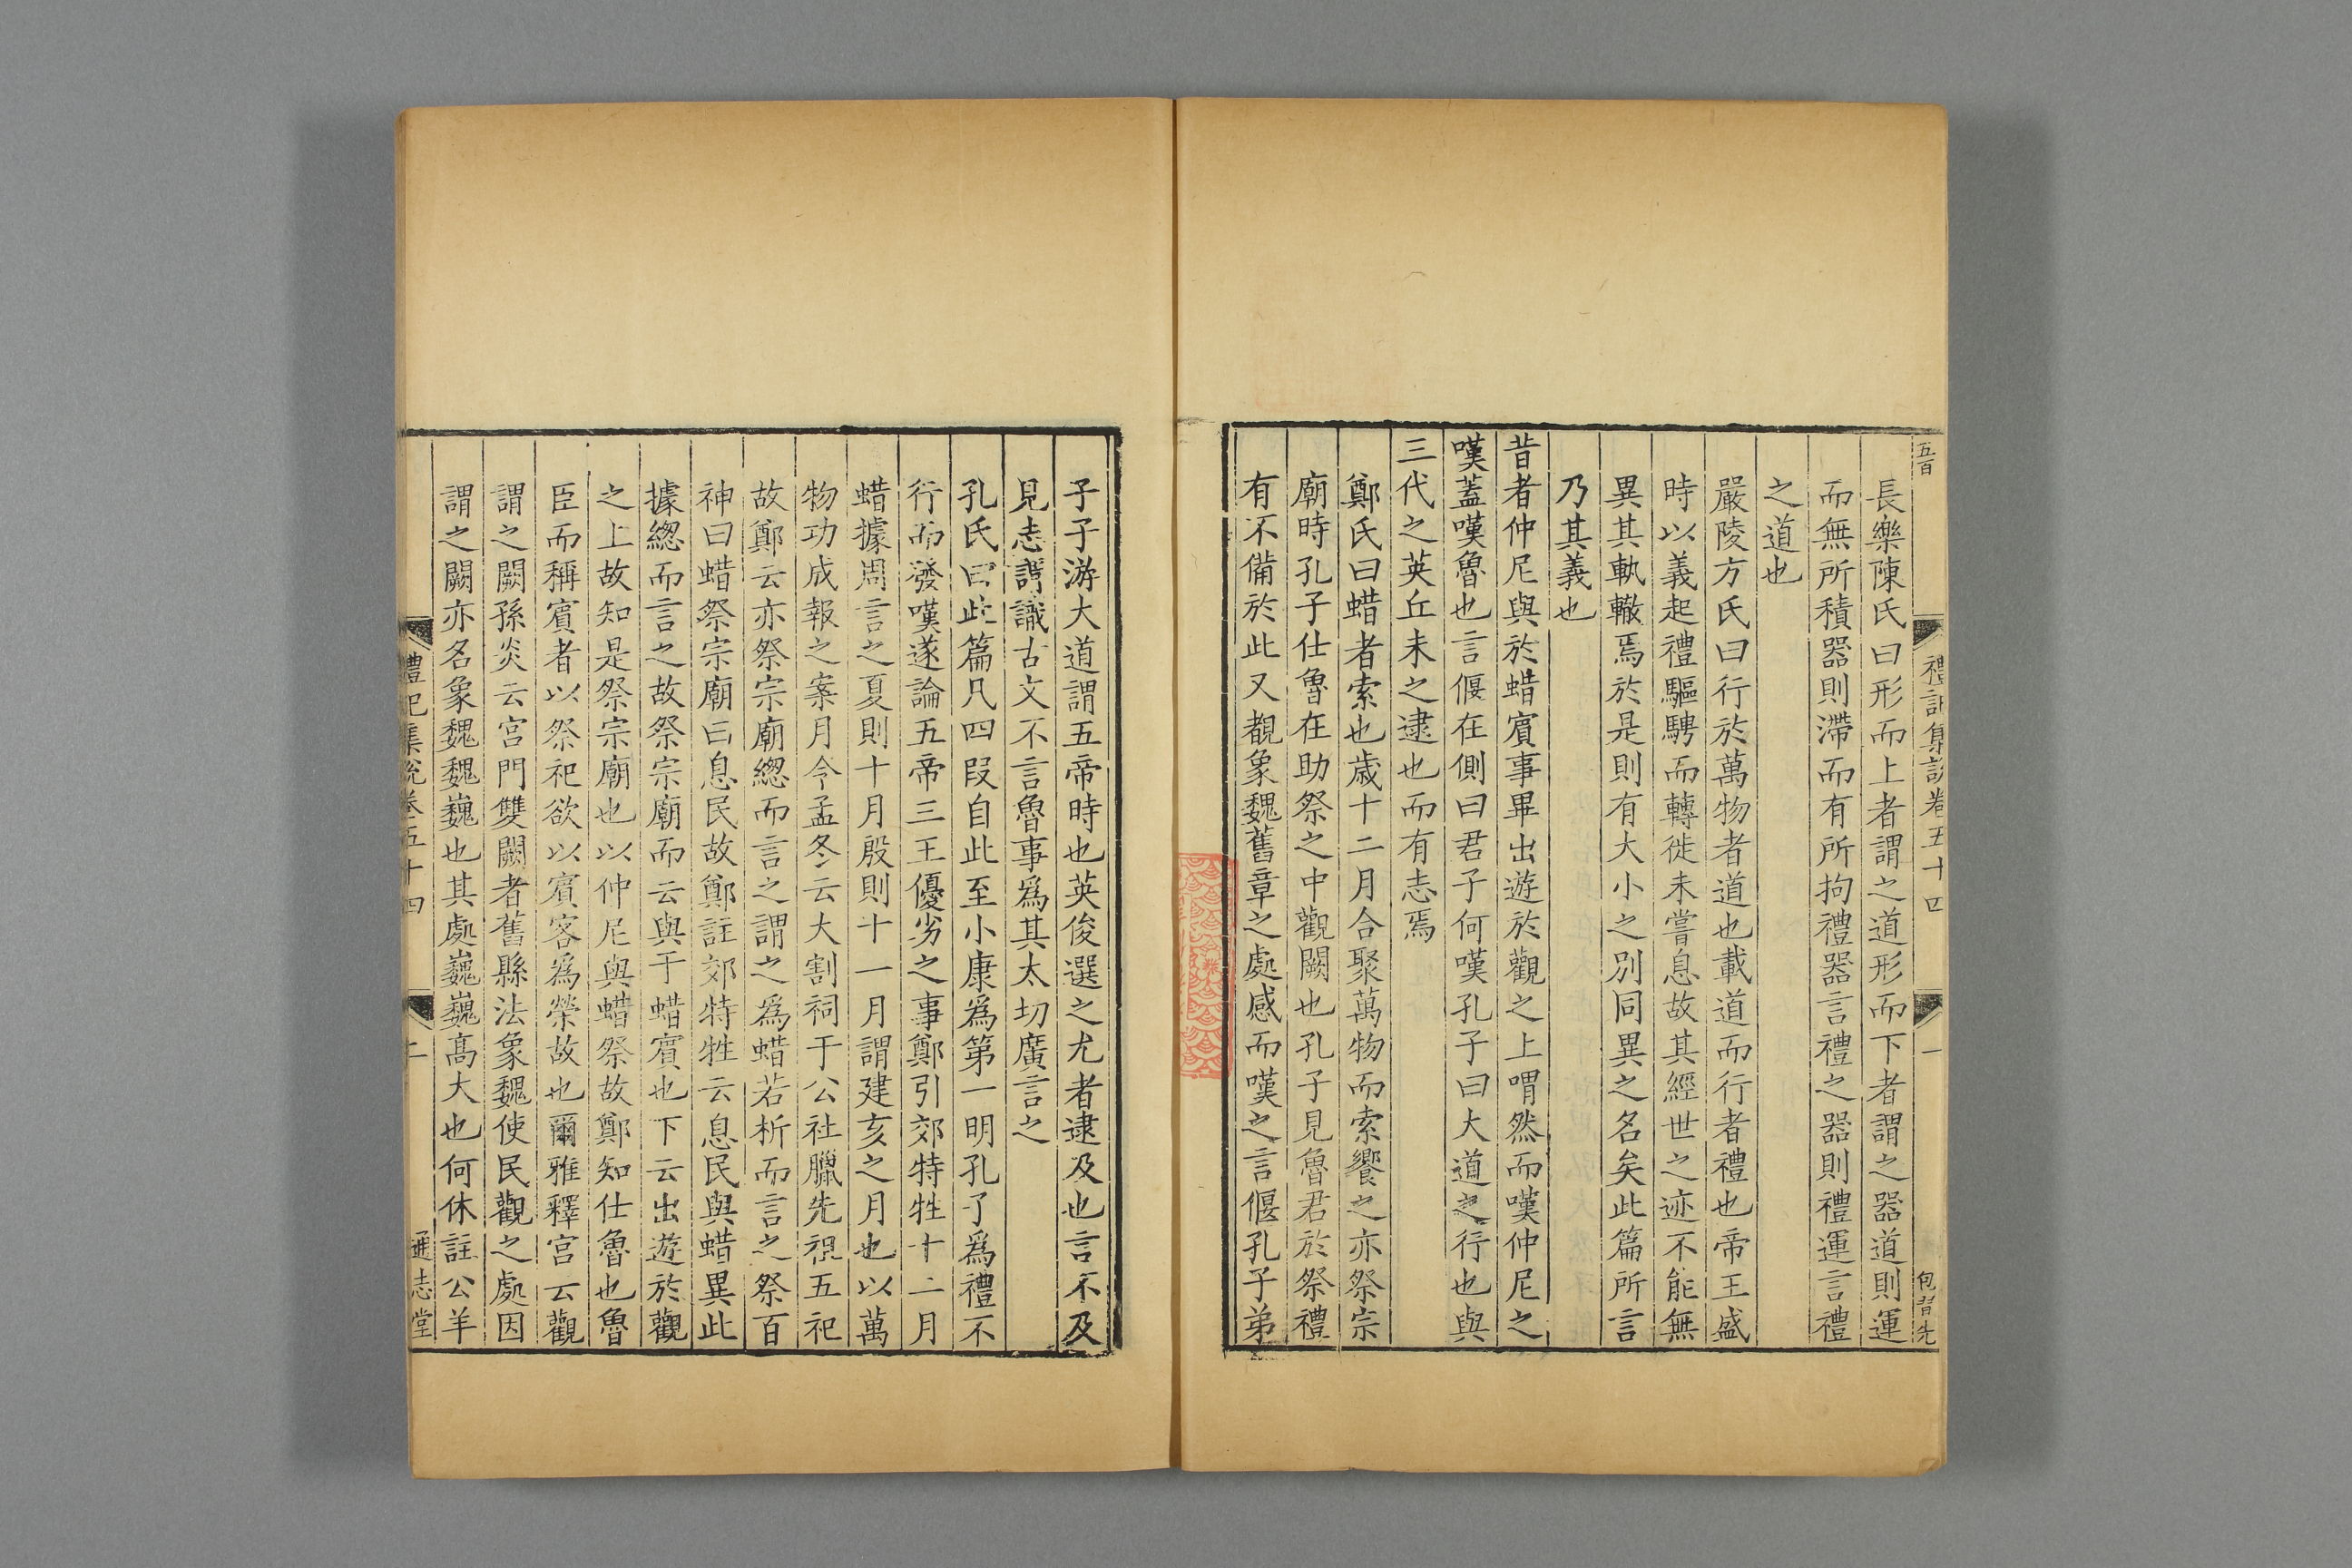 五百
禮記集說卷五十四
一
包晉先
長樂陳氏曰形而上者謂之道形而下者謂之器道則運
而無所積器則滯而有所拘禮器言禮之器則禮運言禮
之道也
嚴陵方氏曰行於萬物者道也載道而行者禮也帝王盛
時以義起禮驅騁而轉徙未嘗息故其經世之迹不能無
異其軌轍焉於是則有大小之別同異之名矣此篇所言
乃其義也
昔者仲尼與於蜡賓事畢出遊於觀之上喟然而嘆仲尼之
嘆蓋嘆魯也言偃在側曰君子何嘆孔子曰大道之行也與
三代之英丘未之逮也而有志焉
鄭氏曰蜡者索也歲十二月合聚萬物而索饗之亦祭宗
廟時孔子仕魯在助祭之中觀闕也孔子見魯君於祭禮
有不備於此又覩象魏舊章之處感而嘆之言偃孔子弟
子子游大道謂五帝時也英俊選之尤者逮及也言不及
見志謂識古文不言魯事爲其太切廣言之
孔氏曰此篇凡四段自此至小康爲第一明孔子爲禮不
行而發嘆遂論五帝三王優劣之事鄭引郊特牲十二月
蜡據周言之夏則十月殷則十一月謂建亥之月也以萬
物功成報之案月令孟冬云大割祠于公社臘先祖五祀
故鄭云亦祭宗廟總而言之謂之爲蜡若析而言之祭百
神曰蜡祭宗廟曰息民故鄭註郊特牲云息民與蜡異此
據總而言之故祭宗廟而云與于蜡賓也下云出遊於觀
之上故知是祭宗廟也以仲尼與蜡祭故鄭知仕魯也魯
臣而稱賓者以祭祀欲以賓客爲榮故也爾雅釋宮云觀
謂之闕孫炎云宮門雙闕者舊縣法象魏使民觀之處因
謂之闕亦名象魏魏巍也其處巍巍高大也何休註公羊
禮記集說卷五十四
二
通志堂